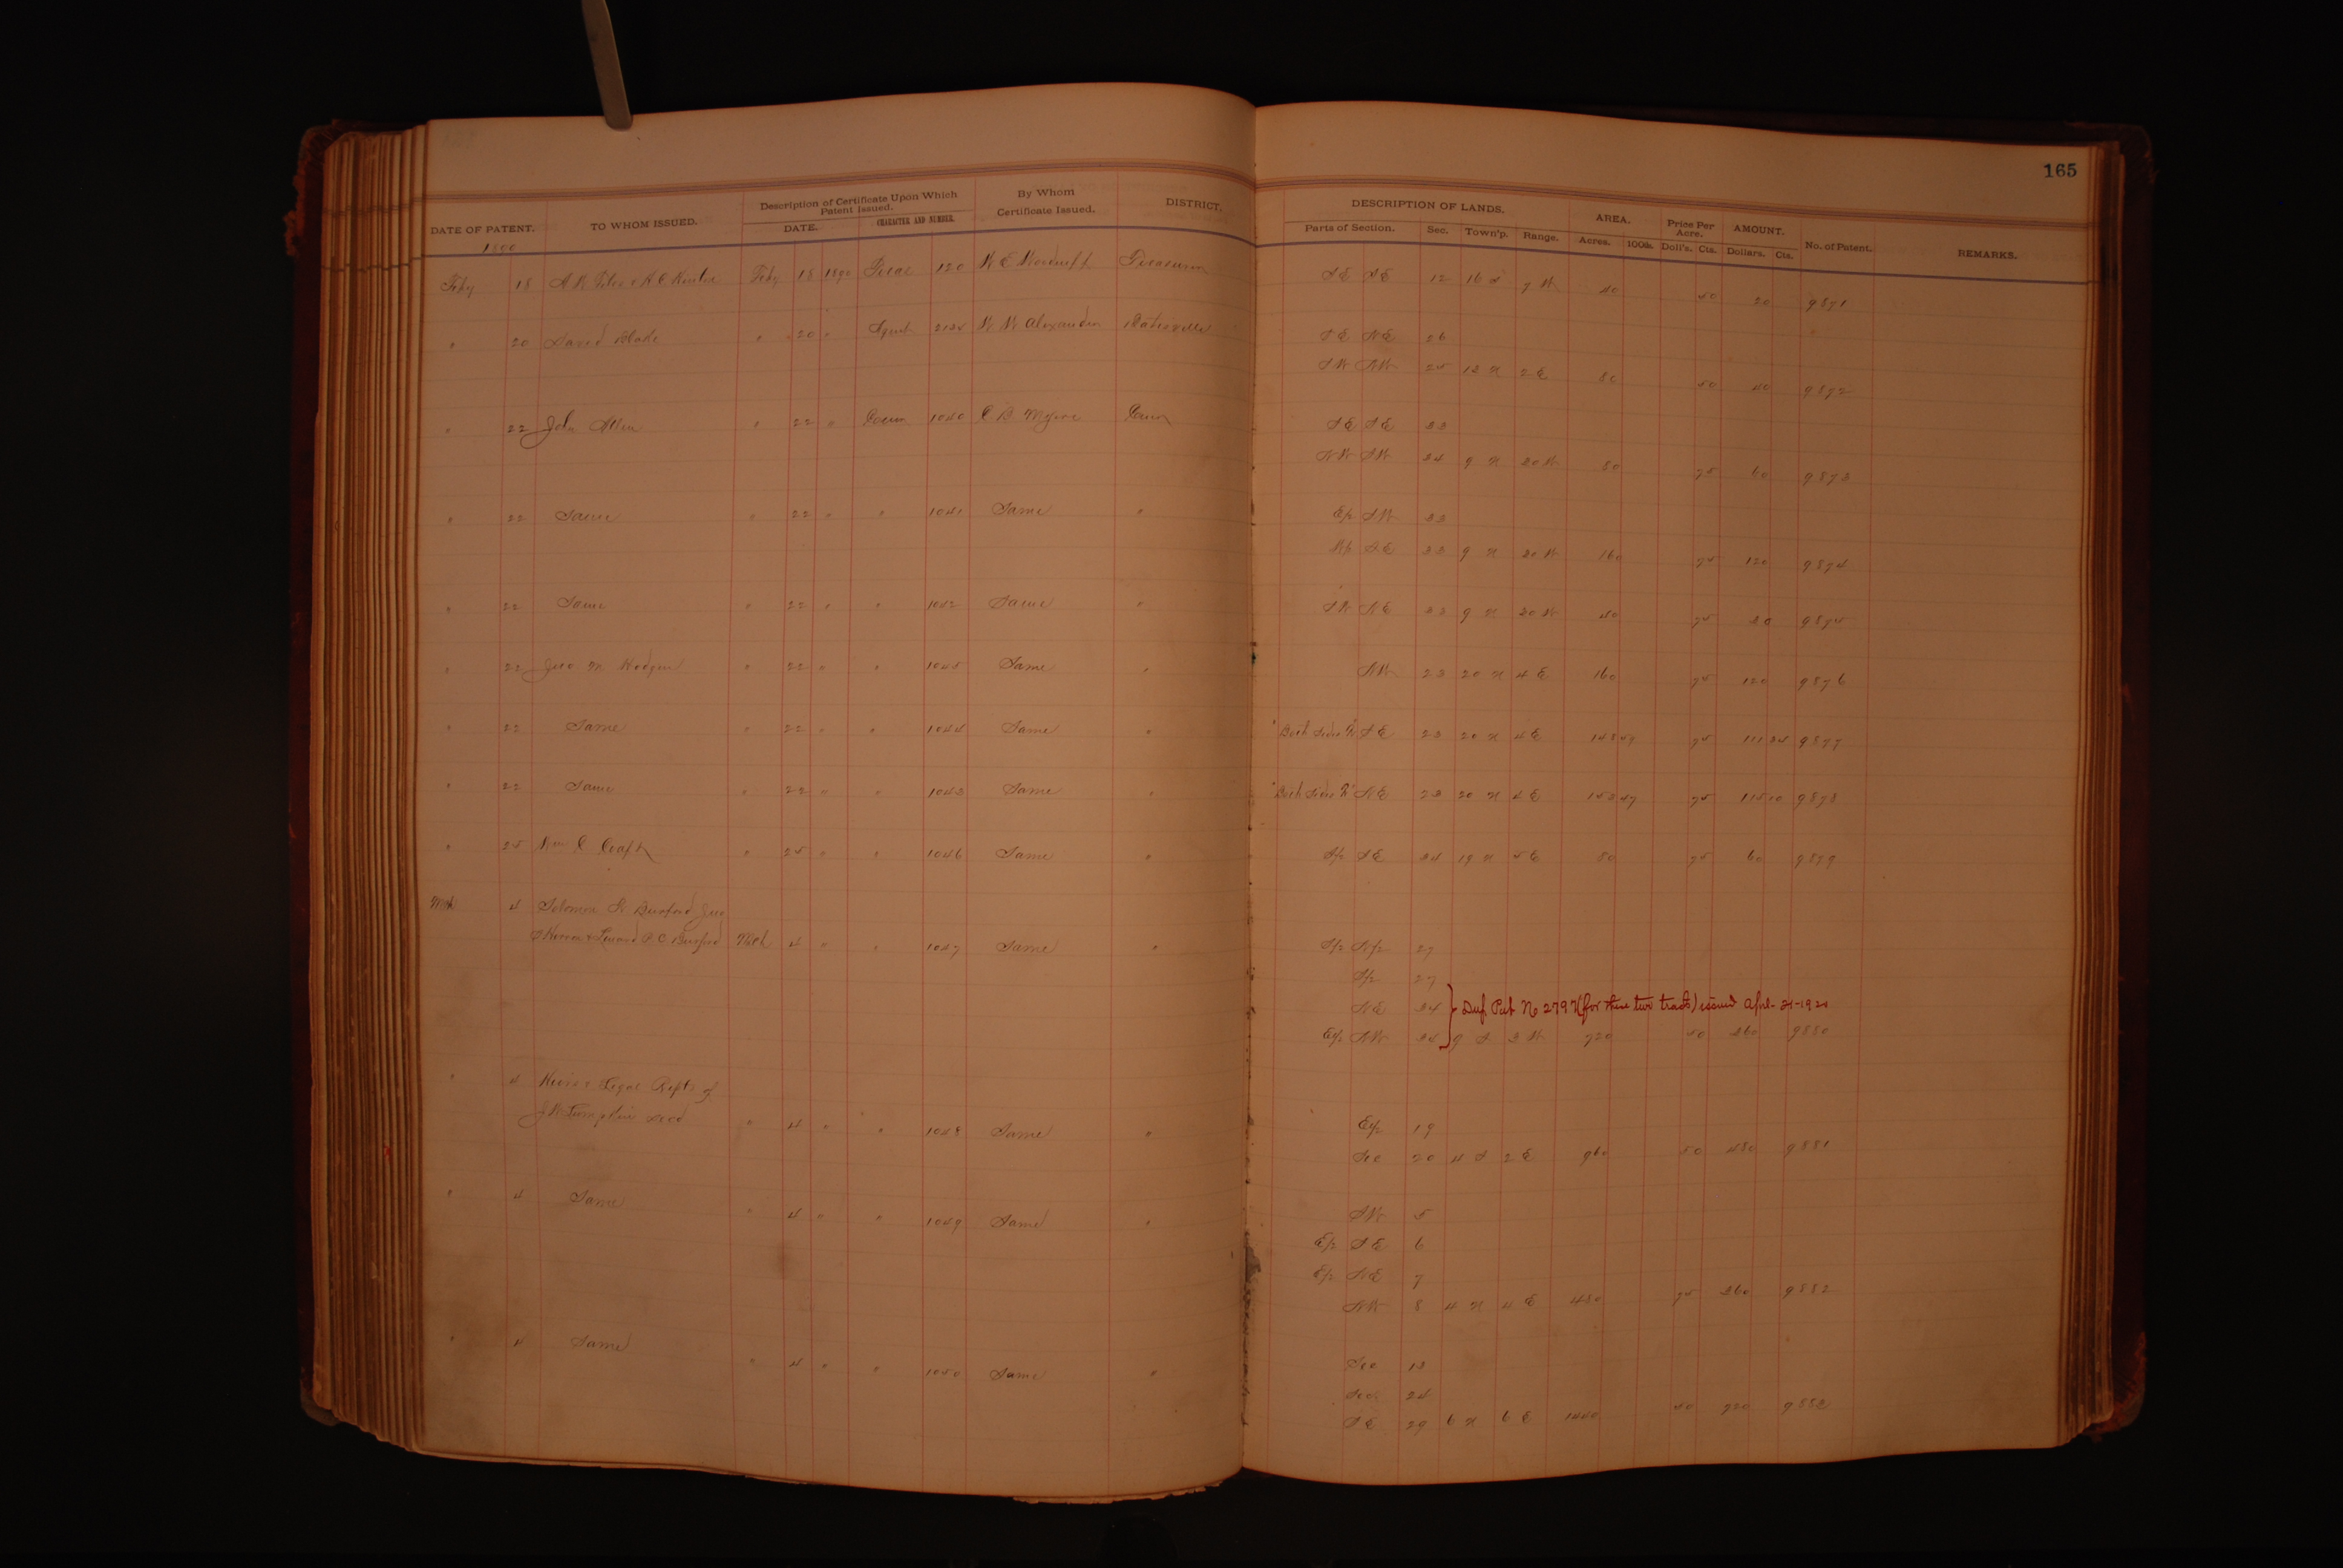 165
DATE OF PATENT. TO WHOM ISSUED. Description of Certificate Upon Which Patent Issued. DATE. CHARACTER AND NUMBER. By Whom Certificate Issued. DISTRICT. DESCRIPTION OF LANDS. Parts of Section. Sec. Town'p. Range. AREA. Acres. 100ds. Price Per Acre. Doll's. Cts. AMOUNT. Dollars. Cts. No. of Patent. REMARKS.
Feby 18 Feby 18 1890 120 SE SE 12 16 S 7 W 40 50 20 9871
" 20 David " 20 " 2134 Alexander Batesville SE NE 26
SW NW 25 13 N 2 E 80 50 40 9872
" 22 John Allen " 22 " Comr 1040 C B Myers Comr SE SE 33
NW SW 34 9 N 30 W 80 75 60 9873
" 22 Same " 22 " " 1041 Same " E½ SW 33
W½ SE 33 9 N 30 W 160 75 120 9874
" 22 Same " 22 " " 1042 Same " SW NE 33 9 N 30 W 40 75 30 9875
" 22 Geo M Hodges " 22 " " 1045 Same " NW 23 20 N 4 E 160 75 120 9876
" 22 Same " 22 " " 1044 Same " "Both sides R" SE 23 20 N 4 E 148 47 75 111 34 9877
" 22 Same " 22 " " 1043 Same " "Both sides R" NE 23 20 N 4 E 153 47 75 115 10 9878
" 25 Wm C Craft " 25 " " 1046 Same " S½ SE 34 19 N 5 E 80 75 60 9879
Mch 4 Solomon Burford
Burford Mch 4 " " 1047 Same " S½ N½ 27
S½ 27
NE 34 Dup. Pat No 2797 (for these two tracts) issued
E½ NW 34 9 S 3 W 720 50 360 9880
" 4 Heirs & Legal Repts of
Lumpkin Decd " 4 " " 1048 Same " E½ 19
Sec 20 4 S 2 E 960 50 480 9881
" 4 Same " 4 " " 1049 Same " SW 5
E½ SE 6
E½ NE 7
NW 8 4 N 4 E 480 75 360 9882
" 4 Same " 4 " " 1050 Same " Sec 13
Sec 24
SE 29 6 N 6 E 1440 50 720